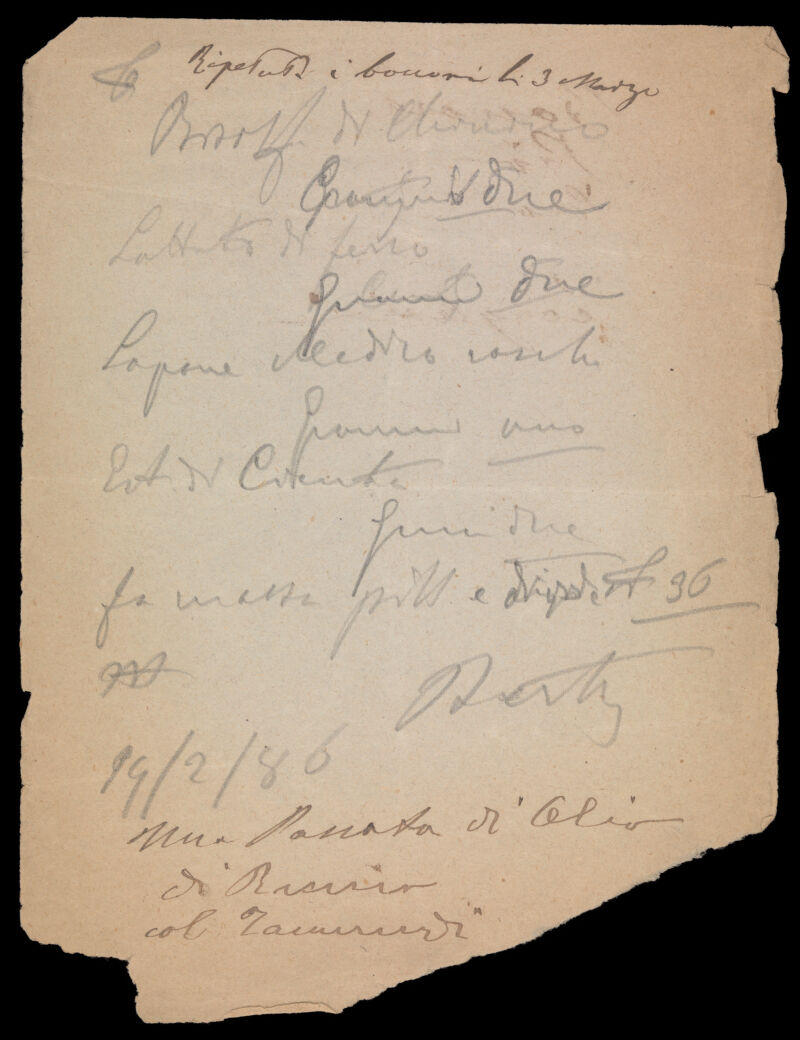 Ripetuti i bocconi li 3 Marzo
di Chinino
Grammi due
Lattato di ferro
Grammi due
Sapone Medico
Grammi uno
Est. di Cicuta
Gmi due
fa massa pill e 36
19/2/86
una Passata di Olio
di Ricino
col Tamarindi